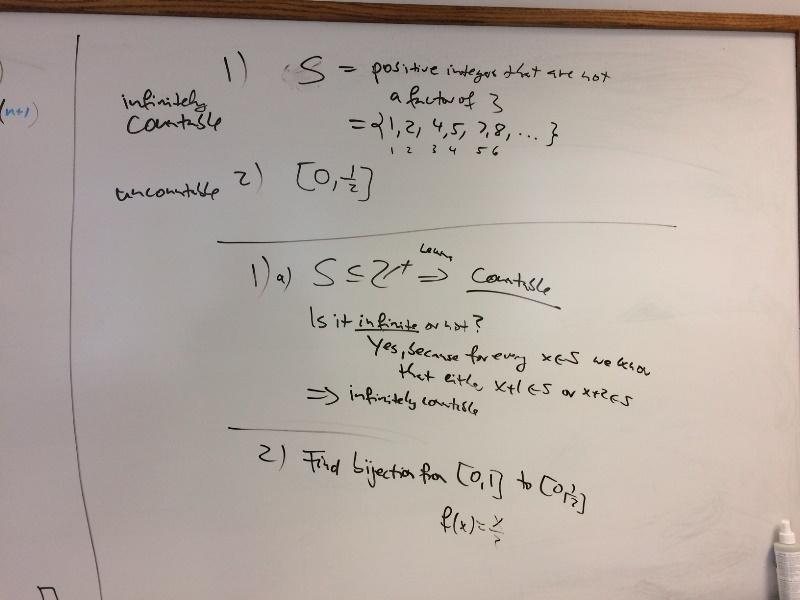 (n+1)
1) S = positive integers that are not
a factor of 3
infinitely
countable
= {1, 2, 4, 5, 7, 8, ... }
1 2 3 4 5 6
uncountable 2) [0, 1/2]
1) a) S ⊆ Z⁺ ⇒ Countable
Is it infinite or not?
Yes, because for every x∈S we know
that either x+1∈S or x+2∈S
⇒ infinitely countable
2) Find bijection from [0,1] to [0,1/2]
f(x)=x/2